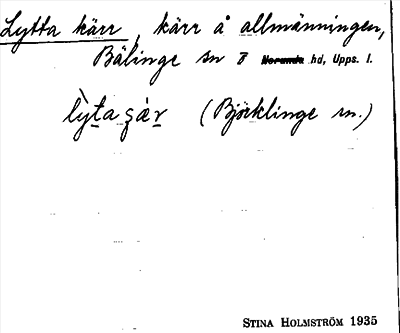 Lytta kärr, kärr å allmänningen,
Bälinge sn hd, Upps. l.
lỳta (Björklinge sn.)
STINA HOLMSTRÖM 1935